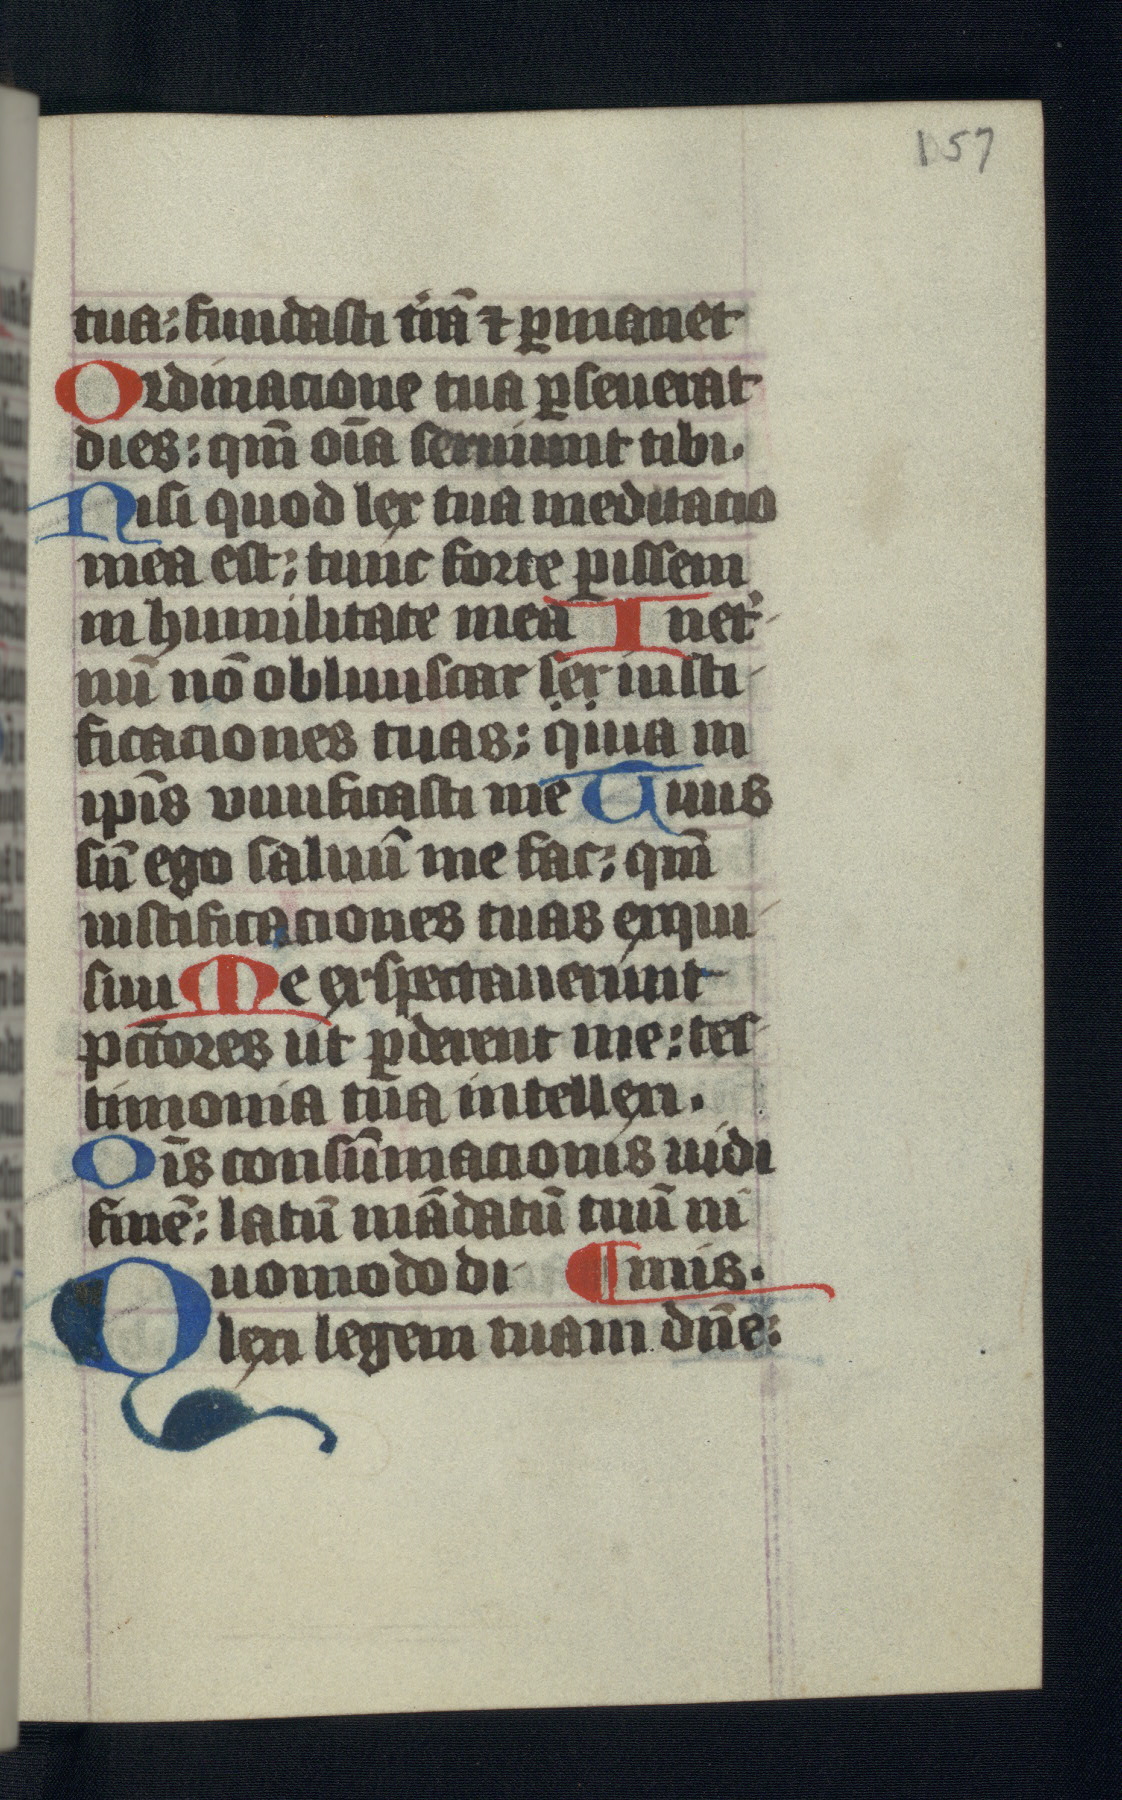 157
tua: fundasti t'rā ⁊ ꝑmanet
Ordinacione tua ꝑseuerat
dies: qm̄ oīa seruiunt tibi.
Nisi quod lex tua meditatio
mea est: tunc forte ꝑissem
in humilitate mea In et'
nū nō obliuiscar ser iusti
ficaciones tuas: quia in
ip̄is viuificasti me Tuus
sū ego saluū me fac: qm̄
iustificaciones tuas exqui
siui Me exspectauerunt
pctōres ut ꝑderent me: tes
timonia tua intellexi.
Oīs consūmacionis uidi
finē: latū mādatū tuū ni
Quomodo di ¶ mis.
lexi legem tuam dn̄e: